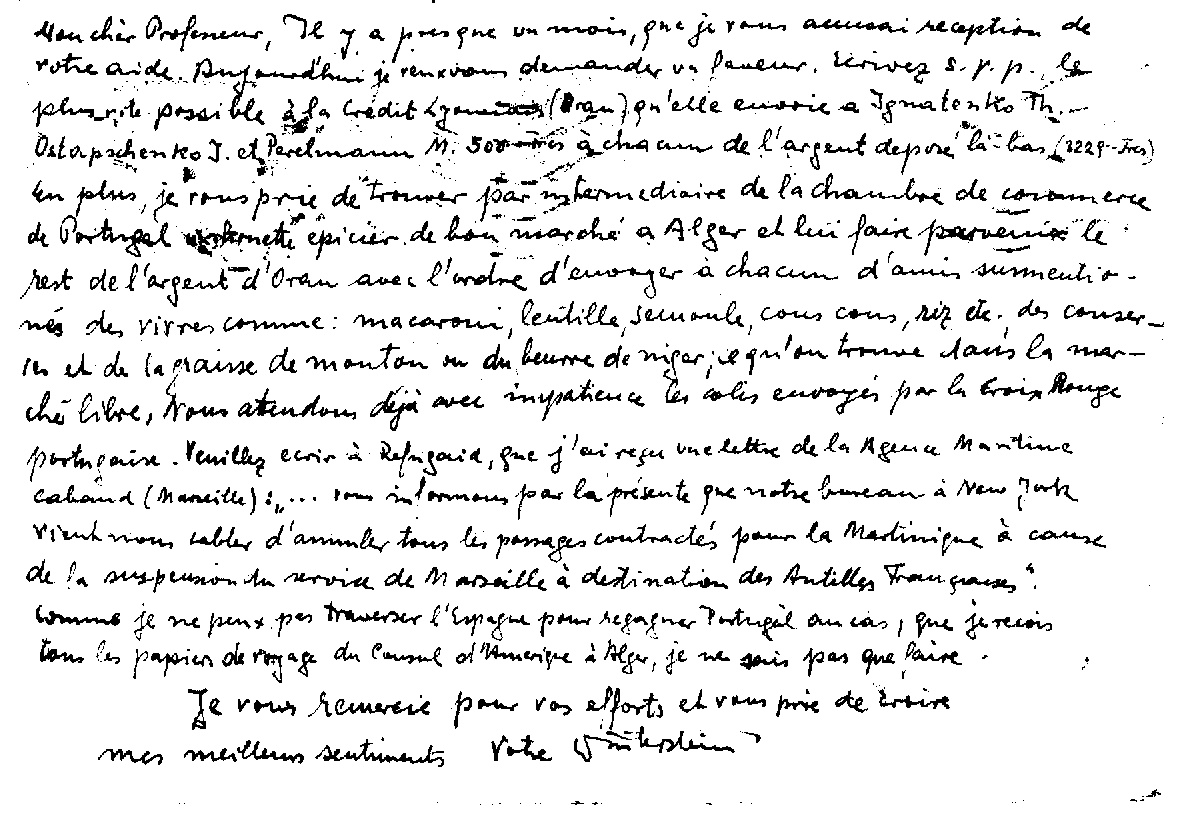 Mon cher Professeur, Il y a presque un mois, que je vous accusai reception de
votre aide. Aujourd'hui je veux vous demander un faveur. Ecrivez s. v. p., le
plus vite possible à la Crédit Lyonnais (Oran) qu'elle envoie a Ignatenko Th.
Ostapschenko J. et Perelmann M. 500 à chacun de l'argent deposé là-bas (3229-Frcs)
En plus, je vous prie de trouver par intermediaire de la chambre de commerce
de Portugal épicier de bon marché a Alger et lui faire parvenir le
rest de l'argent d'Oran avec l'ordre d'envoyer à chacun d'amis susmentio-
nés des vivres comme: macaroni, lentille, semoule, cous cous, riz etc. des conser-
ves et de la graisse de mouton ou du beurre de niger, ce qu'on trouve dans la mar-
ché libre, Nous atendons déjà avec impatience les colis envoyés par la Croix Rouge
portugaise. Veuillez ecrir à Refugaid, que j'ai reçu une lettre de la Agence Maritime
Cabaud (Marseille): „... vous informons par la présente que notre bureau à New York
vient nous cabler d'annuler tous les passages contractés pour la Martinique à cause
de la suspension du service de Marseille à destination des Antilles Françaises".
Comme je ne peux pas traverser l'Espagne pour regagner Portugal au cas, que je reçois
tous les papiers de voyage du Consul d'Amerique à Alger, je ne sais pas que faire.
Je vous remercie pour vos efforts et vous prie de croire
mes meilleurs sentiments Votre Winterstein